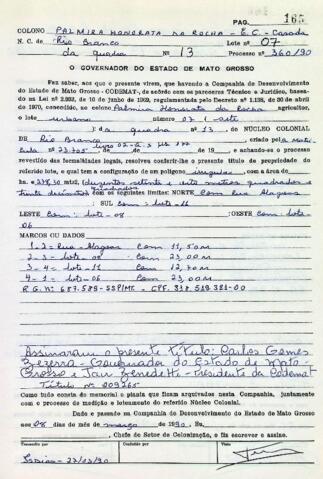 PAG. 165
COLONO PALMIRA HONORATA DA ROCHA - E.C. - Casada
N. C. de Rio Branco Lote nº 07
da quadra Nº 13 Processo nº 360/90
O GOVERNADOR DO ESTADO DE MATO GROSSO
Faz saber, aos que o presente virem, que havendo a Companhia de Desenvolvimento
do Estado de Mato Grosso - CODEMAT-, de acôrdo com os pareceres Técnico e Jurídico, basea-
da na Lei nº 2.992, de 10 de junho de 1969, regulamentada pelo Decreto nº 1.138, de 30 de abril
de 1970, concedido, ao colono Palmira Honorata da Rocha agricultor,
o lote urbano nº 07
): da quadra nº 13, do NÚCLEO COLONIAL
DE Rio Branco, criado pela Matrí-
cula nº de de de 19 , e achando-se o processo
revestido das formalidades legais, resolveu conferir-lhe o presente título de propriedade do
referido lote, e qual tem a configuração de um polígono irregular com a área de
com os seguintes limites: NORTE Com Rua Alagoas
: SUL Com: lote-11
LESTE Com: lote-08 :OESTE Com: lote-
06
MARCOS OU DADOS
1-2= Rua - Alagoas Com 11,50m
2-3= lote-08 Com 23,00m
3-4= lote-11 Com 12,70m
4-1= lote-06 Com 23,00m
Assinaram o presente título: Carlos Gomes
Bezerra - Governador do Estado de Mato-
Grosso e Jair Benedetti - Presidente da Codemat
Título nº 009265
Como tudo consta do memorial e planta que ficam arquivados nesta Companhia, juntamente
com o processo de medição e loteamento do referido Núcleo Colonial.
Dado e passado em Companhia de Desenvolvimento do Estado de Mato Grosso
aos 08 dias do mês de março de 1990, Eu,
, Chefe do Setor de Colonização, o fiz escrever e assino.
Conferido por
Visto
27/03/90